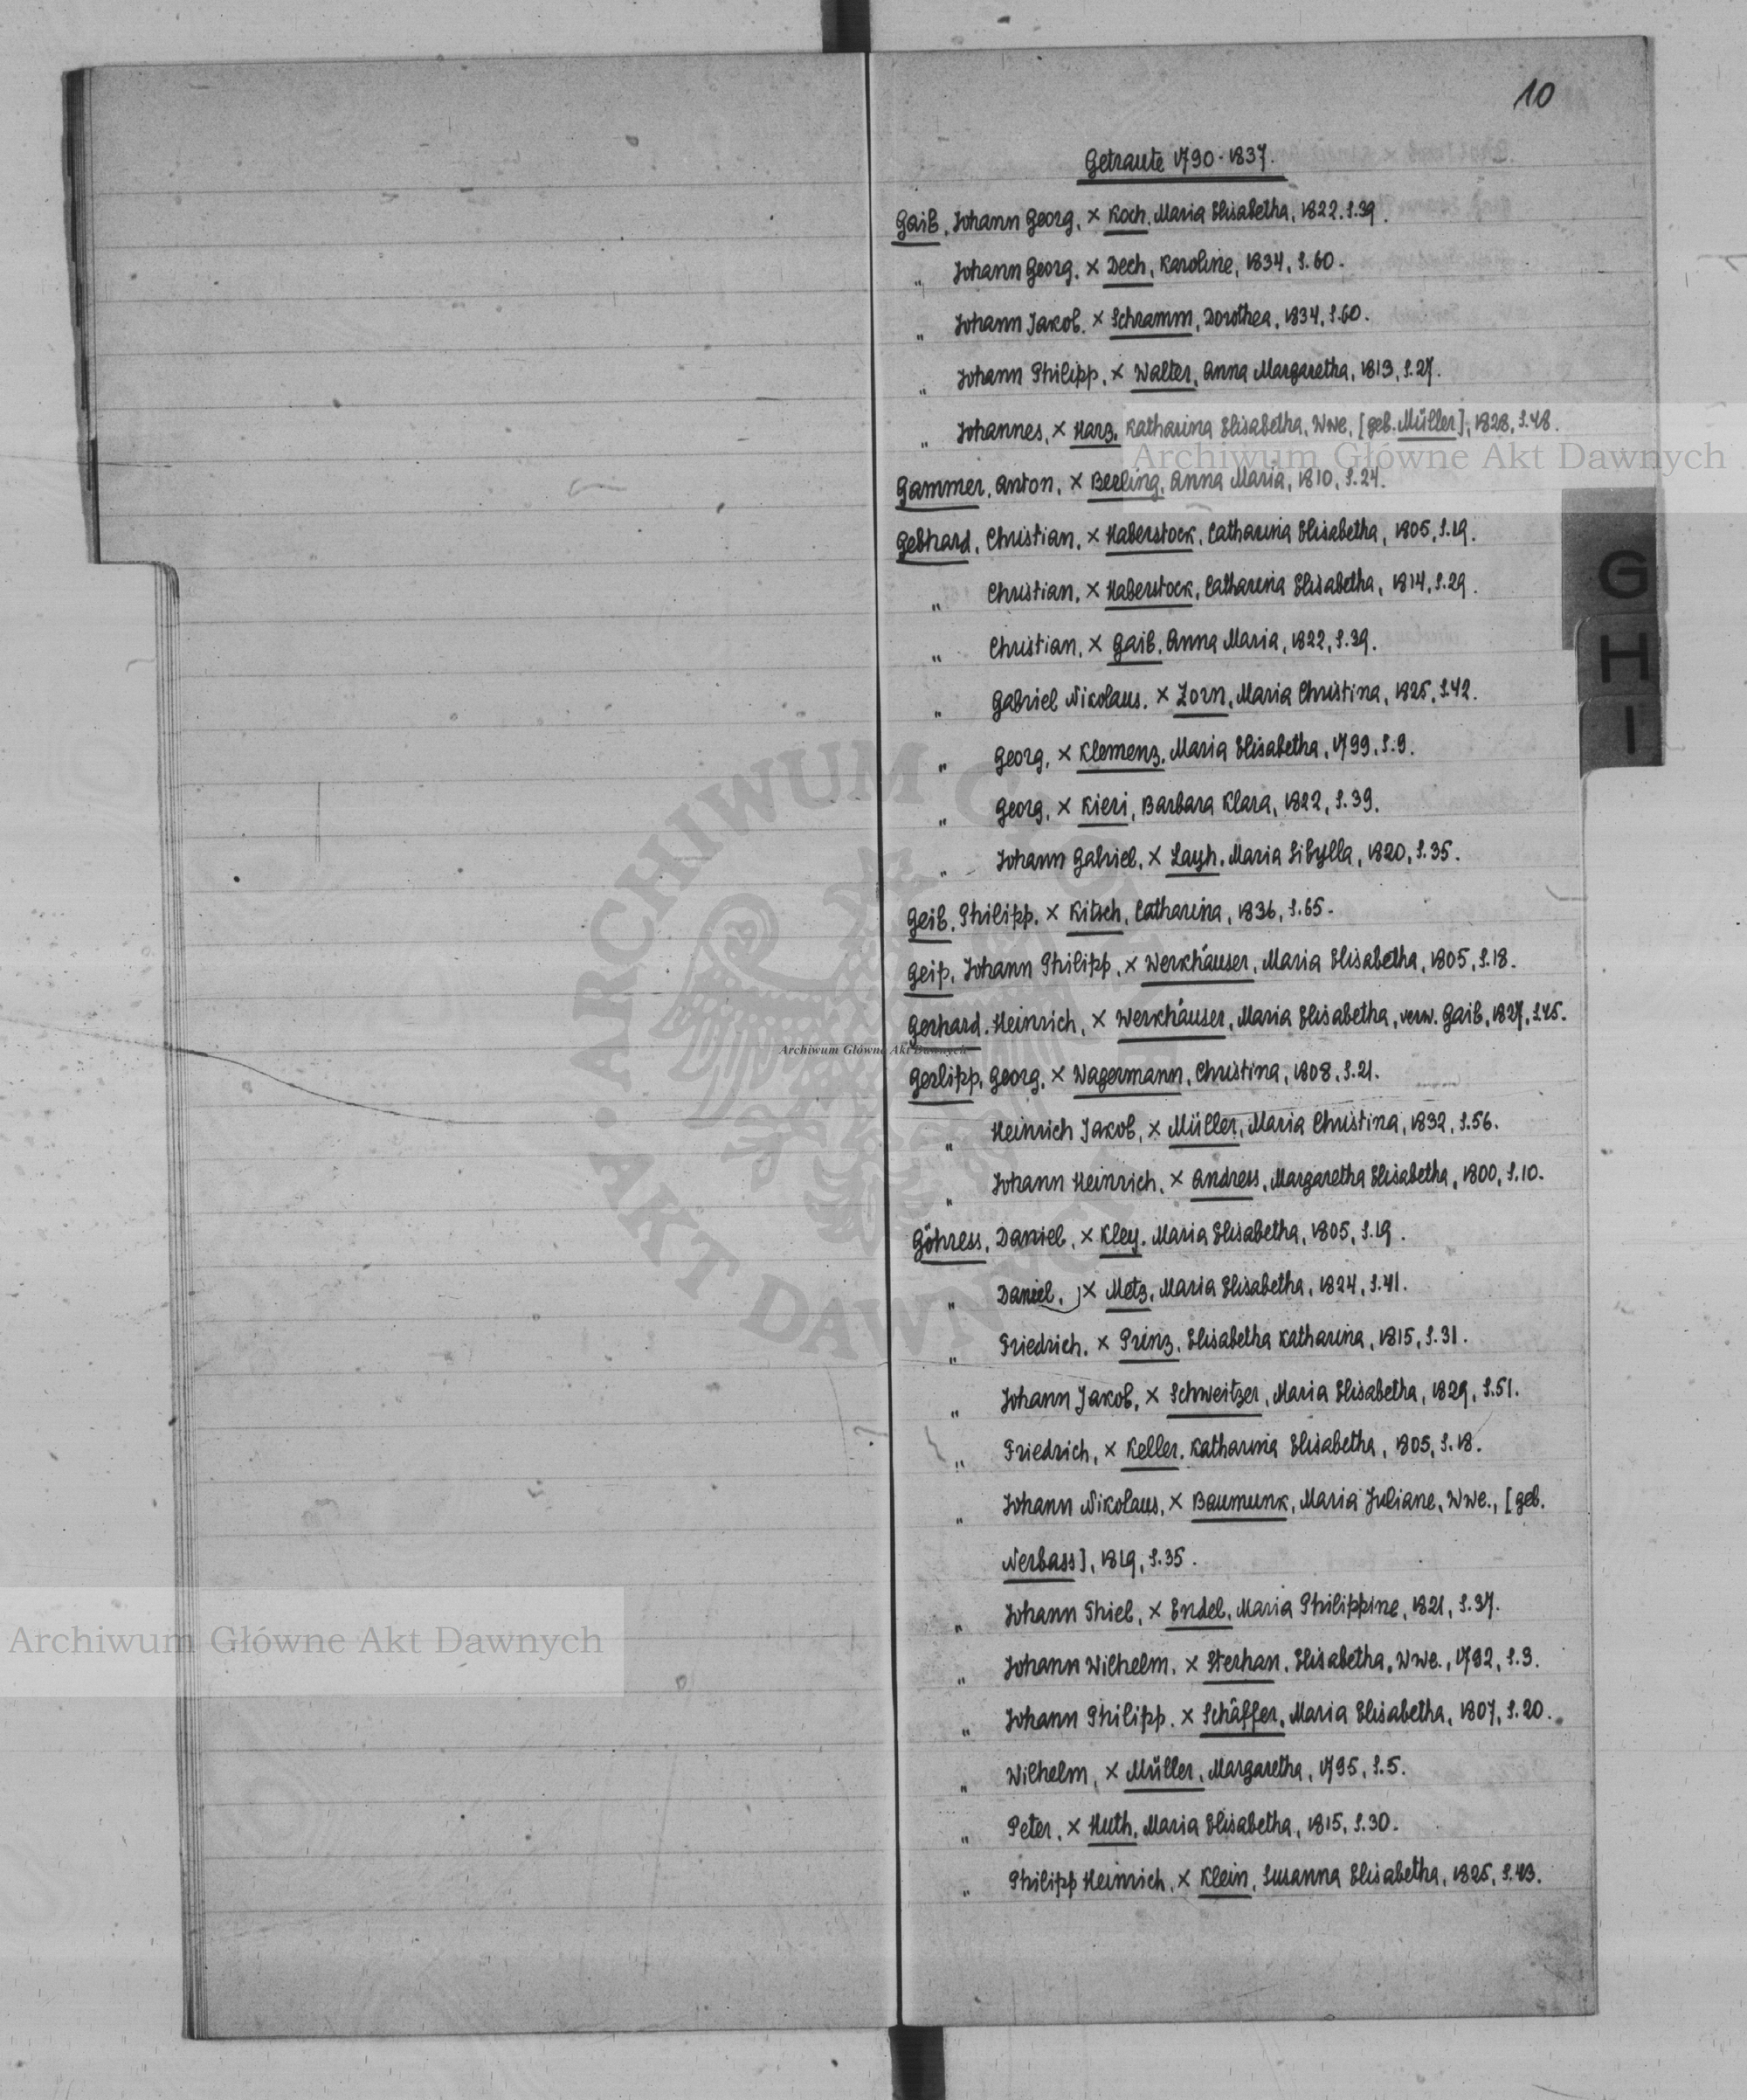 10
Getraute 1790-1837.
Gaib, Johann Georg, × Koch, Maria Elisabetha, 1822, S.39.
" Johann Georg, × Dech, Karoline, 1834, S.60.
" Johann Jakob, × Schramm, Dorothea, 1834, S.60.
" Johann Philipp, × Walter, Anna Margaretha, 1813, S.27.
" Johannes, × Harz, Katharina Elisabetha, Wwe, [geb. Müller], 1828, S.48.
Archiwum Główne Akt Dawnych
Gammer, Anton, × Beeling, Anna Maria, 1810, S.24.
Gebhard, Christian, × Haberstock, Catharina Elisabetha, 1805, S.19.
" Christian, × Haberstock, Catharina Elisabetha, 1814, S.29.
" Christian, × Gaib, Anna Maria, 1822, S.39.
" Gabriel Nikolaus, × Zorn, Maria Christina, 1825, S.42.
" Georg, × Klemenz, Maria Elisabetha, 1799, S.9.
" Georg, × Kieri, Barbara Klara, 1822, S.39.
" Johann Gabriel, × Layh, Maria Sibylla, 1820, S.35.
Geib, Philipp, × Kitsch, Catharina, 1836, S.65.
Geip, Johann Philipp, × Werkhäuser, Maria Elisabetha, 1805, S.18.
Gerhard, Heinrich, × Werkhäuser, Maria Elisabetha, verw. Gaib, 1827, S.45.
Archiwum Główne Akt Dawnych
Gerlipp, Georg, × Wagermann, Christina, 1808, S.21.
" Heinrich Jakob, × Müller, Maria Christina, 1832, S.56.
" Johann Heinrich, × Andress, Margaretha Elisabetha, 1800, S.10.
Göhress, Daniel, × Kley, Maria Elisabetha, 1805, S.19.
" Daniel, × Metz, Maria Elisabetha, 1824, S.41.
" Friedrich, × Prinz, Elisabetha Katharina, 1815, S.31.
" Johann Jakob, × Schweitzer, Maria Elisabetha, 1829, S.51.
" Friedrich, × Keller, Katharina Elisabetha, 1805, S.18.
" Johann Nikolaus, × Baumunk, Maria Juliane, Wwe., [geb.
Nerbass], 1819, S.35.
" Johann Thiel, × Endel, Maria Philippine, 1821, S.37.
" Johann Wilhelm, × Sterhan, Elisabetha, Wwe., 1792, S.3.
" Johann Philipp, × Schäffer, Maria Elisabetha, 1807, S.20.
" Wilhelm, × Müller, Margaretha, 1795, S.5.
" Peter, × Huth, Maria Elisabetha, 1815, S.30.
" Philipp Heinrich, × Klein, Susanna Elisabetha, 1825, S.43.
G
H
I
ARCHIWUM GŁÓWNE
AKT DAWNYCH
Archiwum Główne Akt Dawnych